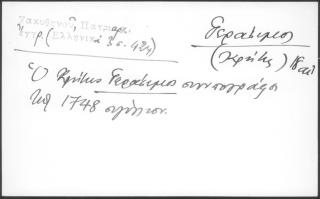 Ζακυθηνοῦ, Πατριαρ.
ἔγγρ. (Ἑλληνικὰ 3 σ. 424)
Γεράσιμος
(Κρήτης) 18 αἰ.
Ὁ Κρήτης Γεράσιμος συνυπογράφει
τῷ 1748 σιγίλλιον.